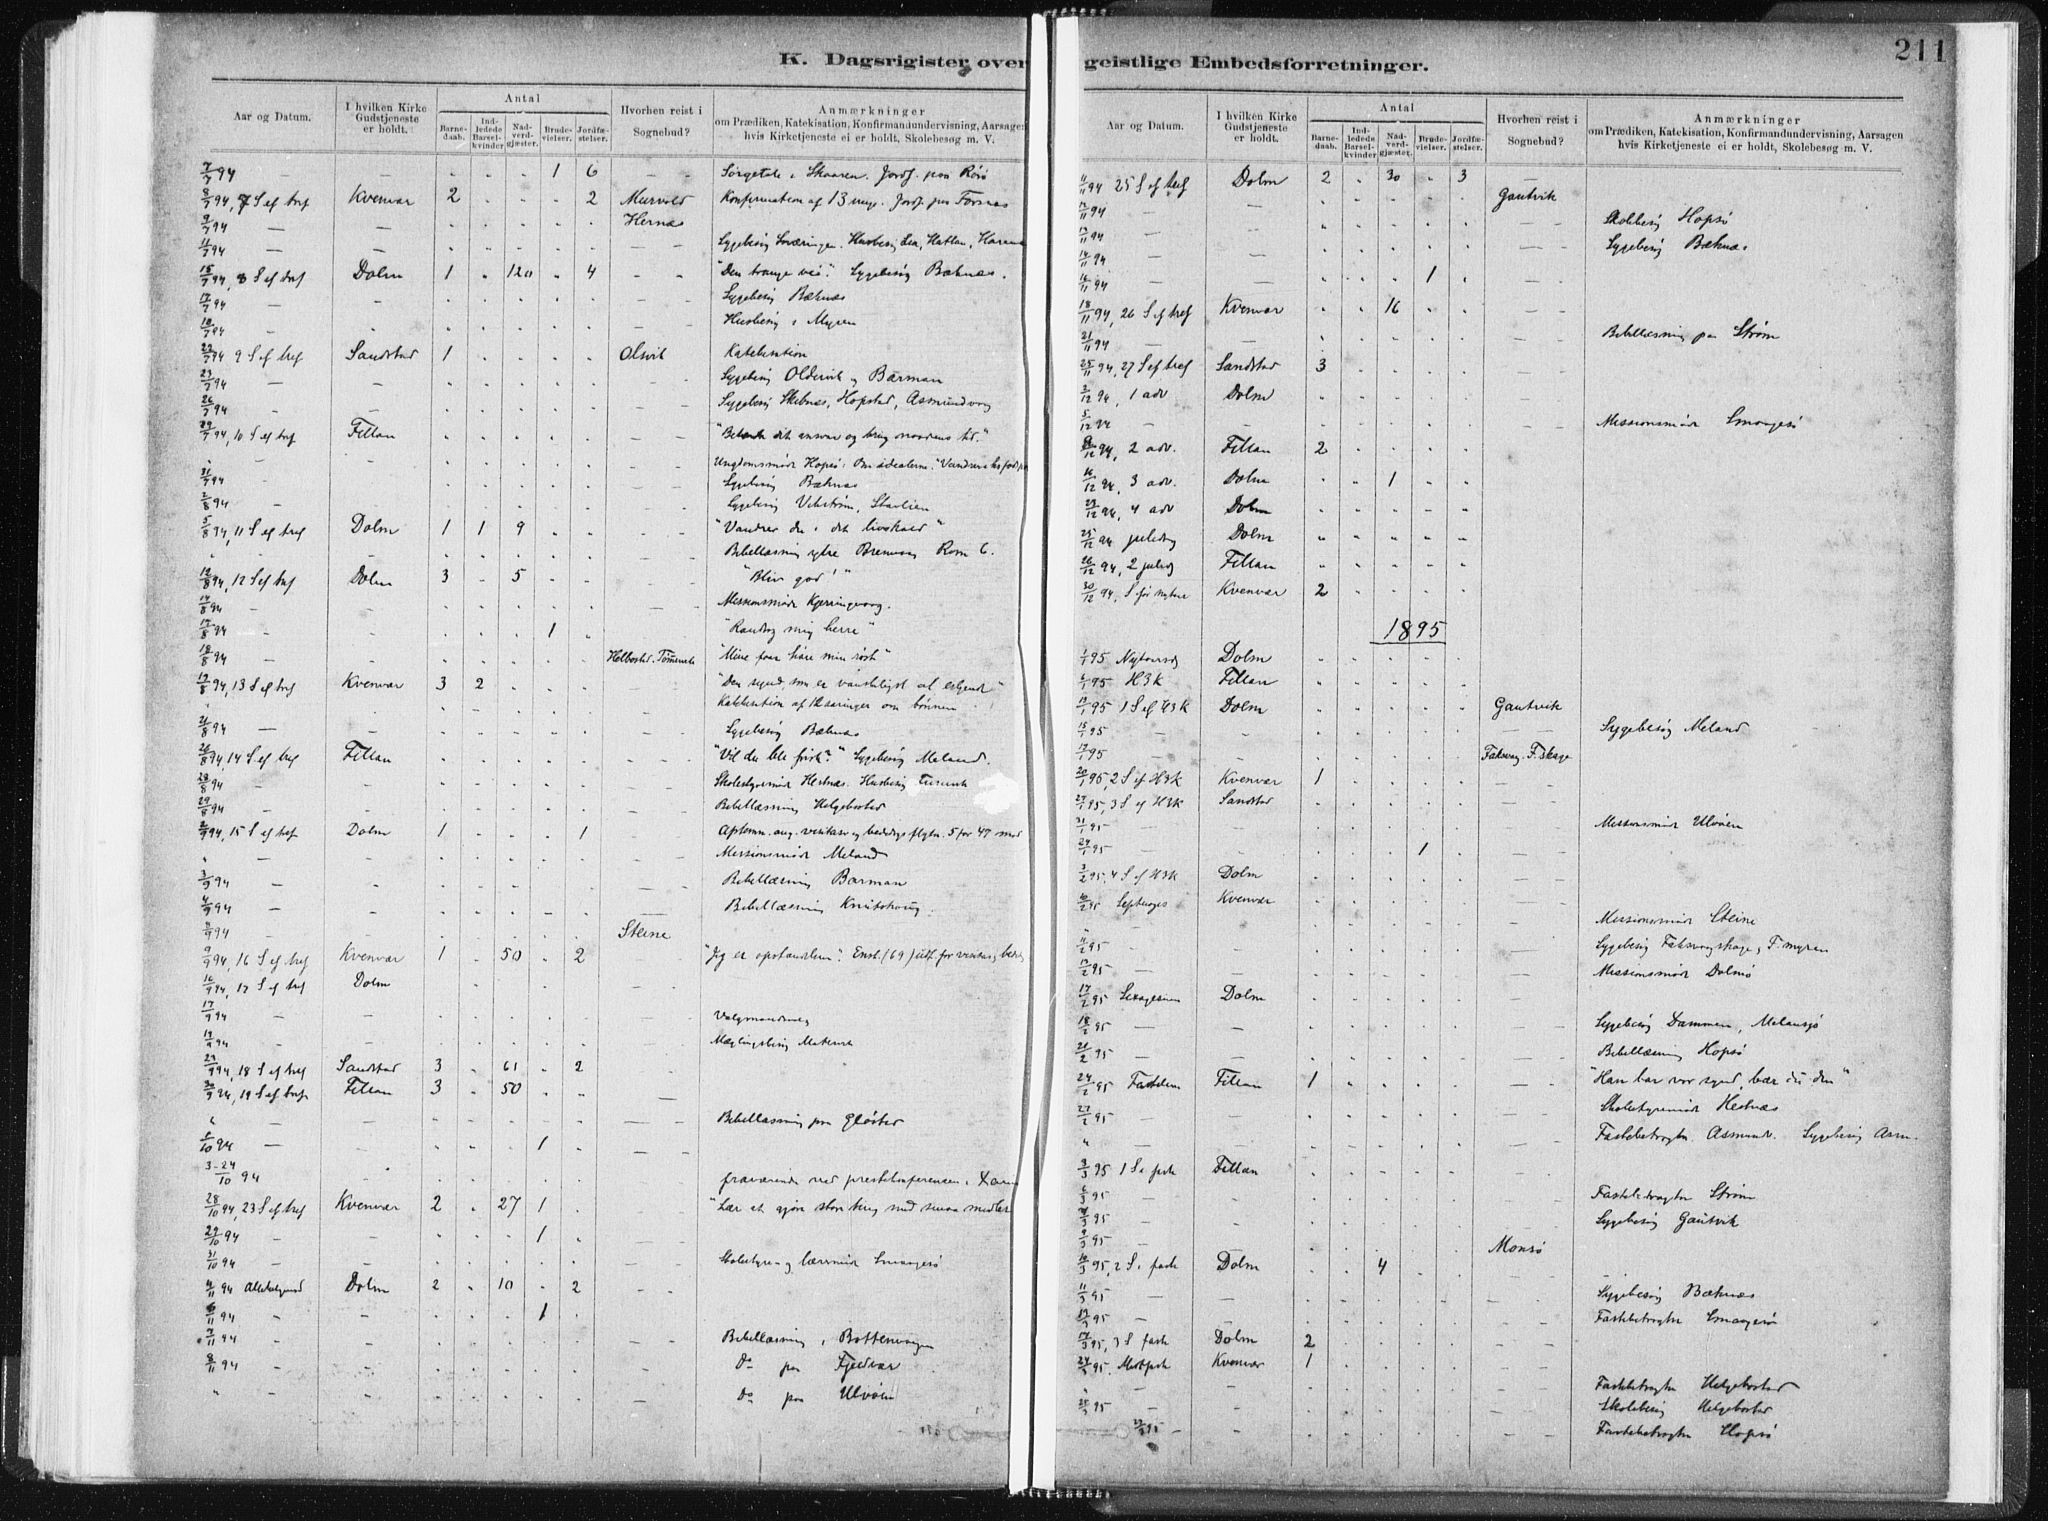 K. Dagsrigister over geistlige Embedsforretninger.
211
Aar og Datum.
I hvilken Kirke Gudstjeneste er holdt.
Antal
Barnedaab.
Indledede Barselkvinder
Nadverdgjæster.
Brudevielser.
Jordfæstelser.
Hvorhen reist i Sognebud?
Anmærkninger
om Prædiken, Katekisation, Konfirmandundervisning, Aarsagen
hvis Kirketjeneste ei er holdt, Skolebesøg m. V.
7/7 94 — — 1 6 — Skaaren. Jordf. paa
8/7 94, 7 S ef tref Kvenvær 2 2 Murvold Konfirmation af 13 unge. Jordf. paa Forsnæs
9/7 94 — — Hernæs
11/7 94 — — Sygebesøg Husbesøg Lia, Hattan,
15/7 94, 8 S ef tref Dolm 1 120 4 "Den trange vei". Sygebesøg Bæknæs.
17/7 94 — Sygebesøg Bæknæs
18/7 94 — Husbesøg i Myren
22/7 94 9 S ef tref Sandstad 1 Olsvik Katekisation
23/7 94 — — Sygebesøg Oldervik og Barman
26/7 94 — — Sygebesøg Skibnæs, Hopstad, Asmundvag
29/7 94, 10 S ef tref Fillan dit ansvar og brug naadens tid."
Ungdomsmøde Hopsø: Om idealerne.
31/7 94 — Sygebesøg Bæknæs
2/8 94 — Sygebesøg
5/8 94, 11 S ef tref Dolm 1 1 9 "Vandrer du i dit livskald"
Bibellæsning ytre Brenvag Rom 6.
12/8 94, 12 S ef tref Dolm 3 5 "Bliv god!"
14/8 94 — Missionsmøde Kjerringvaag.
17/8 94 — 1 mig herre"
18/8 94 — Helbostad. "Mine faar høre min røst"
19/8 94, 13 S ef tref Kvenvær 3 2 "Den synd som er vanskeligst at erkjende"
Katekisation af om bønnen
21/8 94 — Sygebesøg Bæknæs
26/8 94, 14 S ef tref Fillan "Vil du ble frisk?" Sygebesøg Meland.
28/8 94 Skolestyremøde Hestnæs. Husbesøg
29/8 94 — Bibellæsning Helgebostad
2/9 94, 15 S ef tref Dolm 1 1
— Missionsmøde Meland
3/9 94 — Bibellæsning Barman
4/9 94 — Bibellæsning Knutshaug.
8/9 94 — Steine
9/9 94, 16 S ef tref Kvenvær 1 50 2 "Jeg er opstandelsen".
16/9 94, 17 S ef tref Dolm
17/9 94 — Valgmandsvalg
19/9 94 — Mæglingsbesøg
23/9 94, 18 S ef tref Sandstad 3 61 2
30/9 94, 19 S ef tref Fillan 3 50
Bibellæsning paa Gløstad
5/10 94 — 1
3-24/10 94 fraværende ved prestekonferensen i
28/10 94, 23 S ef tref Kvenvær 2 27 1 "Lær at gjøre store ting med smaa midler
29/10 94 — 1
31/10 94 Skolestyre- og lærermøde Smaagesø
4/11 94 Allehelgensd Dolm 2 10 2
6/11 94 — 1
7/11 94 — Bibellæsning i Bottenvagen
8/11 94 — Do paa Fjeldvær
" — Do paa Ulvøen
Aar og Datum.
I hvilken Kirke Gudstjeneste er holdt.
Antal
Barnedaab.
Indledede Barselkvinder
Nadverdgjæster.
Brudevielser.
Jordfæstelser.
Hvorhen reist i Sognebud?
Anmærkninger
om Prædiken, Katekisation, Konfirmandundervisning, Aarsagen
hvis Kirketjeneste ei er holdt, Skolebesøg m. V.
11/11 94 25 S ef tref Dolm 2 30 3 —
12/11 94 — Gautvik
13/11 94 — Skolebesøg Hopsø
14/11 94 — Sygebesøg Bæknæs
16/11 94 — 1
18/11 94, 26 S ef tref Kvenvær 16
21/11 94 — Bibellæsning paa Strøm
25/11 94, 27 S ef tref Sandstad 3
2/12 94, 1 adv Dolm
5/12 94 — Missionsmøde Smaagesø
9/12 94, 2 adv. Fillan 2
16/12 94, 3 adv. Dolm 1
23/12 94, 4 adv Dolm
25/12 94 juledag Dolm
26/12 94, 2 juledg Fillan
30/12 94, S før nytaar Kvenvær 2
1895
1/1 95 Nytaarsdg Dolm
6/1 95 H3K Fillan
13/1 95 1 S ef H3K Dolm Gautvik
15/1 95 — Sygebesøg Meland
17/1 95 — Faksvag. F. skage
20/1 95, 2 S ef H3K Kvenvær 1
27/1 95, 3 S ef H3K Sandstad
31/1 95 — Missionsmøde Ulvøen
24/1 95 — 1
3/2 95, 4 S ef H3K Dolm
10/2 95 Septuages Kvenvær
Missionsmøde Steine
11/2 95 — Sygebesøg Faksvagskage, F. myren
12/2 95 — Missionsmøde Dolmø
17/2 95 Sexagesima Dolm
18/2 95 — Sygebesøg Dammen, Melansjø
20/2 95 — Bibellæsning Hopsø
24/2 95 Fastelavn Fillan 1 "Han bar vor synd, bær du den"
27/2 95 — Skolestyremøde Hestnæs
" — Fastebetragtn. Asmundv. Sygebesøg Asm.
3/3 95 1 S i faste Fillan
6/3 95 — Fastebetragtn Strøm
8/3 95 — Sygebesøg Gautvik
9/3 95 — Monsø
10/3 95, 2 S i faste Dolm 4
11/3 95 — Sygebesøg Bæknæs
13/3 95 — Fastebetragtn Smaagesø
17/3 95, 3 S faste Dolm 2
24/3 95. Midtfaste Kvenvær 1
" — Fastebetragtn Helgebostad
25/3 95 — Skolebesøg Helgebostad
27/3 95 — Fastebetragtn Hopsø